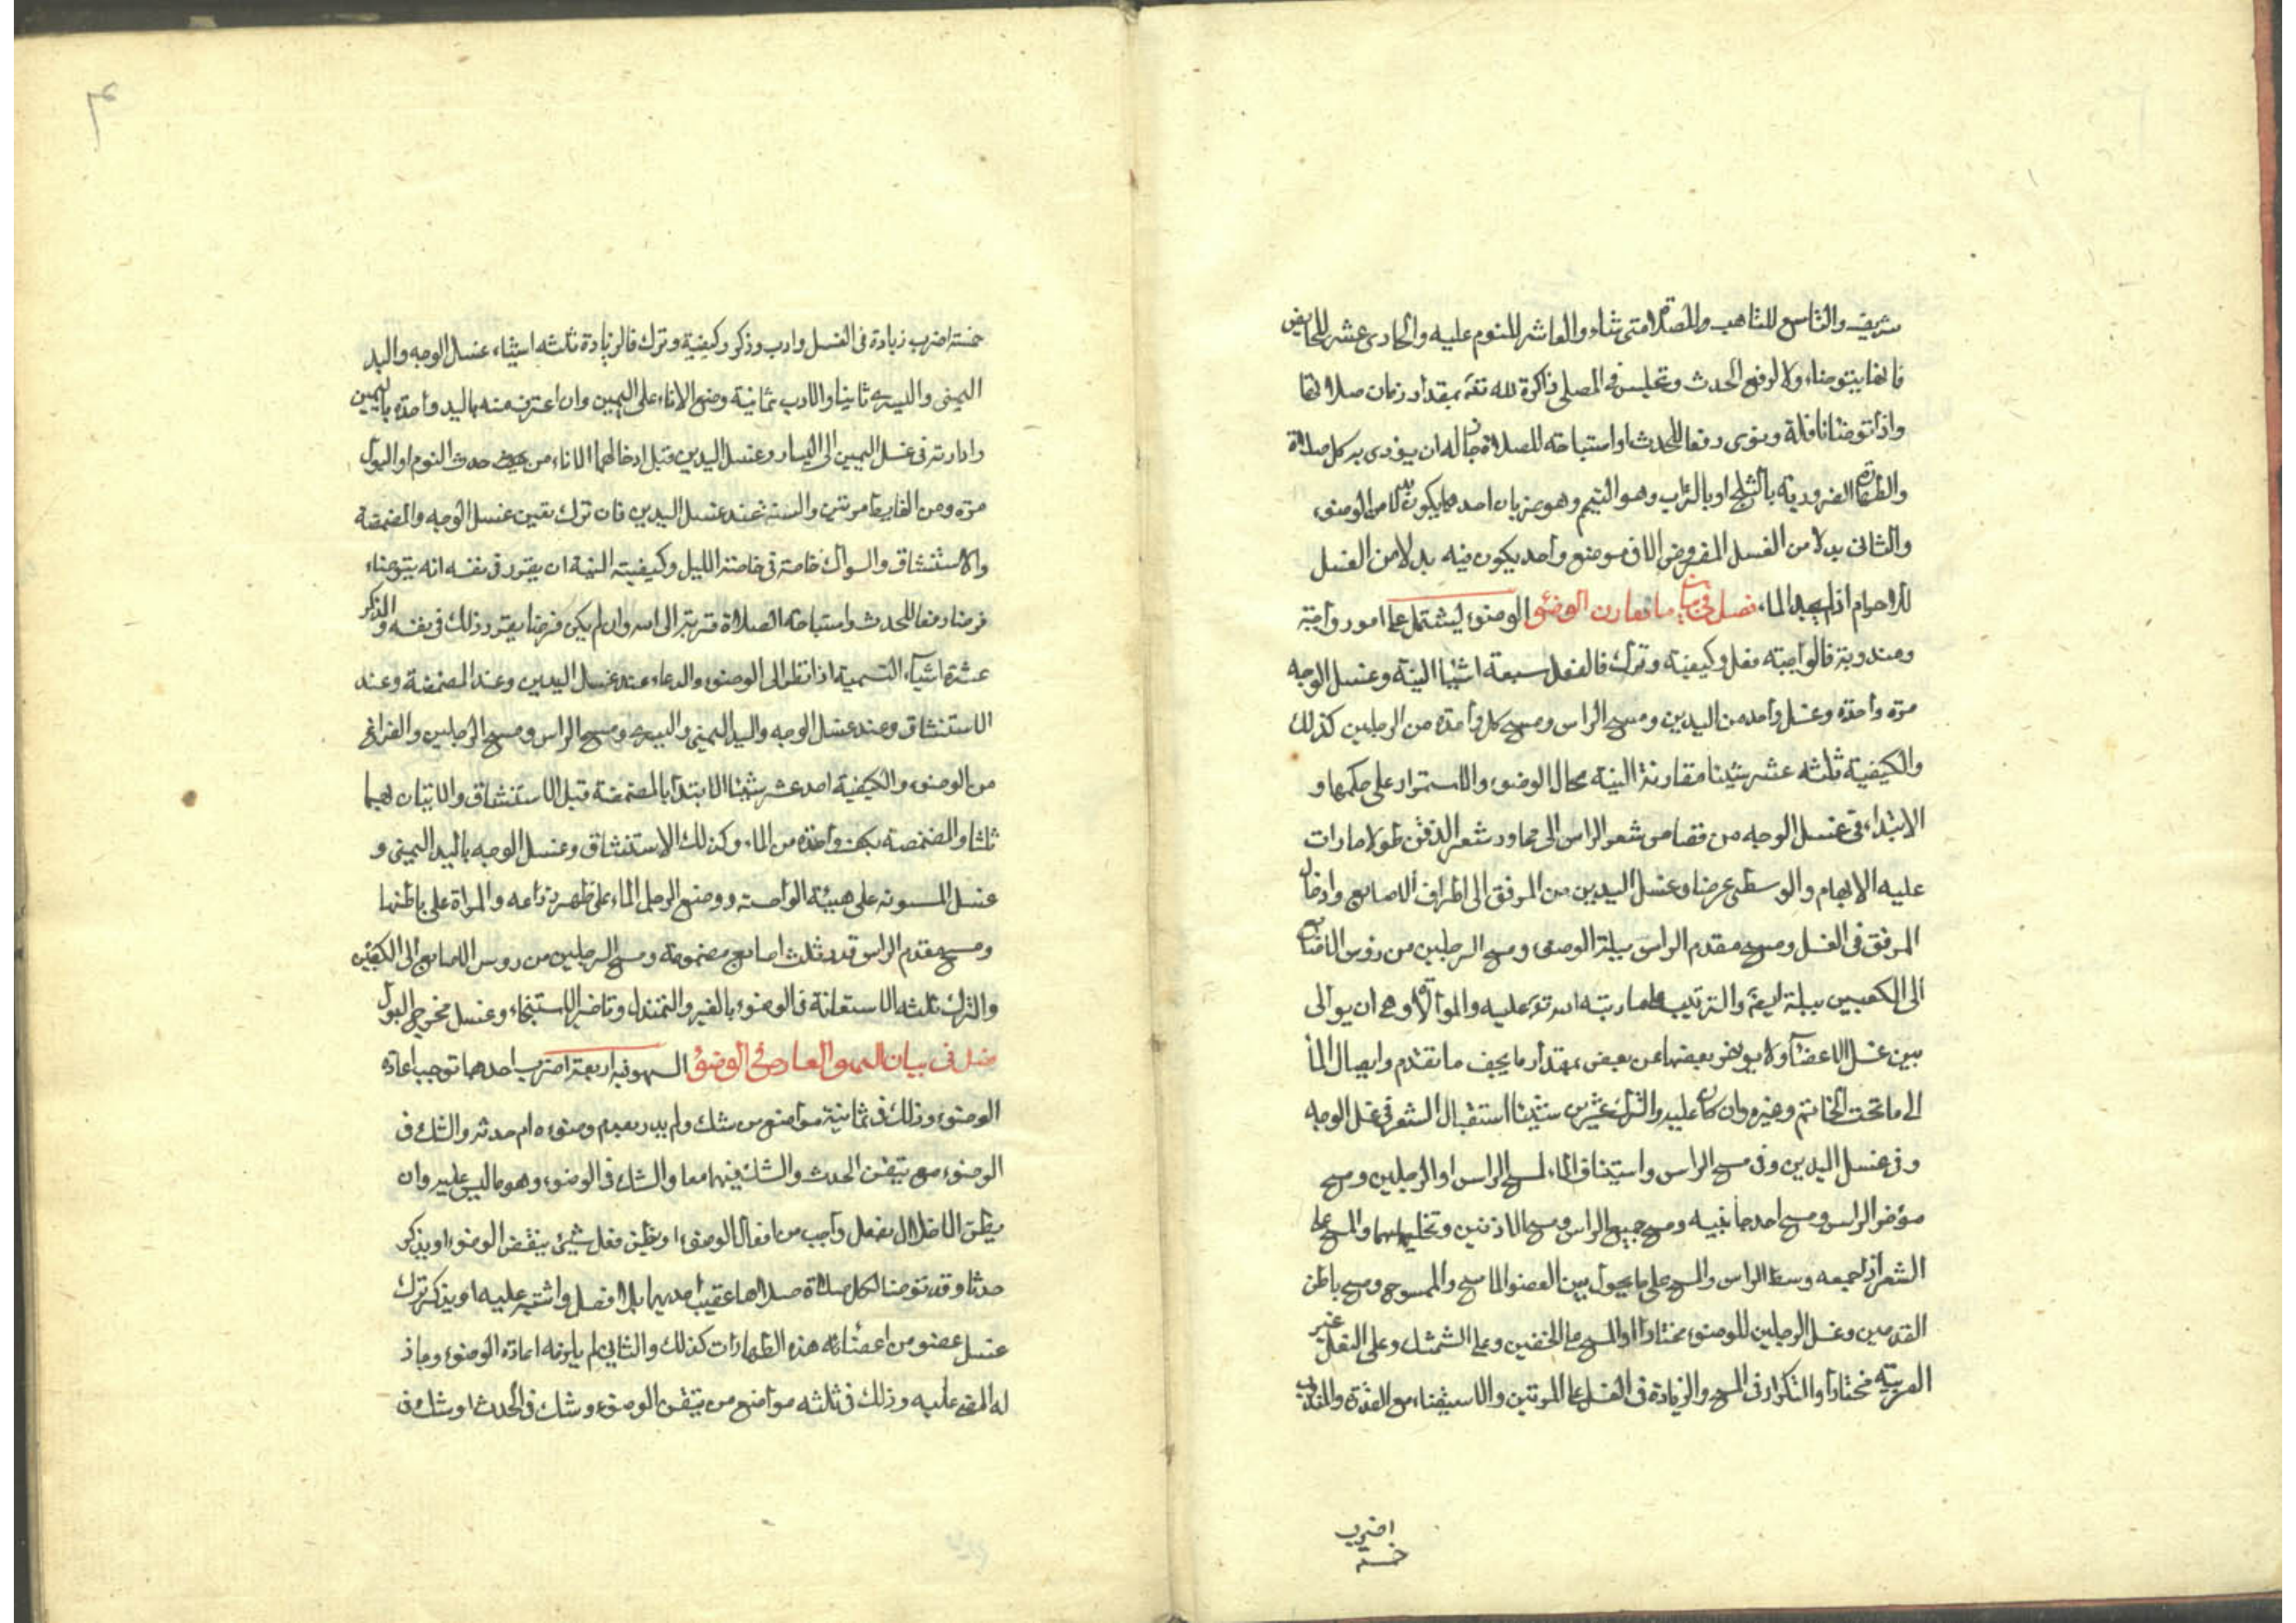 شريف والتاسع للتاهب للصلاة متى شاء والعاشر للنوم عليه والحادى عشر للحايض
فانها يتوضاء ولا لرفع الحدث وتجلس فى المصلى ذاكرة لله تع بمقدار زمان صلاتها
واذا توضا نافلة ونوى رفعا للحدث او استباحة للصلاة جاز له ان يؤدى به كل صلاة
والطهارة الضرورية بالثلج او بالتراب وهو التيمم وهو ضربان احدهما يكون بدلا من الوضوء
والثانى بدلا من الغسل المفروض الا فى موضع واحد يكون فيه بدلا من الغسل
للاحرام اذا لم يجد الماء فصل فى بيان ما تقارن الوضوء الوضوء يشتمل على امور واجبة
ومندوبة فالواجبة فعل وكيفية وترك فالفعل سبعة اشيا النية وغسل الوجه
مرة واحدة وغسل واحد من اليدين ومسح الراس ومسح كل واحدة من الرجلين كذلك
والكيفية ثلثه عشر شيئا مقارنة النية بحال الوضوء والاستمرار على حكمها و
الابتداء فى غسل الوجه من قصاص شعر الراس الى محاور شعر الذقن طولا مادارت
عليه الابهام والوسطى عرضا وغسل اليدين من المرفق الى اطراف الاصابع وادخال
المرفق فى الغسل ومسح مقدم الراس ببلة الوضوء ومسح الرجلين من رؤس الاصابع
الى الكعبين ببلة ايضا والترتيب كما رتبه الله تع عليه والموالاة وهى ان يوالى
بين غسل الاعضآء ولا يؤخر بعضها عن بعض بمقدار ما يجف ما تقدم وايصال المآ
الى ما تحت الخاتم وغيره وان كان عليه والترك عشرين شيئا استقبال الشعر فى غسل الوجه
وفى غسل اليدين وفى مسح الراس واستيناف الماء لمسح الراس او الرجلين ومسح
مؤخر الراس ومسح احد جانبيه ومسح جميع الراس ومسح الاذنين وتخليلهما والمسح على
الشعر اذا جمعه وسط الراس والمسح على ما يحول بين العضو الماسح والممسوح ومسح باطن
القدمين وغسل الرجلين للوضوء مختارا او المسح على الخفين وعلى الشمشك وعلى النعل غير
العربية مختارا والتكرار فى المسح والزيادة فى الغسل على المرتين والاستيضاء مع القدرة والندب
اضرب
خمسة
خمسة اضرب زيادة فى الغسل وادب وذكر وكيفية وترك فالزيادة ثلثه اشياء غسل الوجه واليد
اليمنى واليسرى ثانيا والادب ثمانية وضع الاناء على اليمين وان اغترف منه باليد واحدة باليمين
وادارته فى غسل اليمين الى اليسار وغسل اليدين قبل ادخالهما الاناء من حدث النوم او البول
مرة ومن الغايط مرتين والسنة عند غسل اليدين فان ترك تعين غسل الوجه والمضمضة
والاستنشاق والسواك خاصة فى خاصة الليل وكيفيته النية ان يقرر فى نفسه انه يتوضاء
فرضا رفعا للحدث واستباحة الصلاة قربة الى الله وان لم يكن فرضا يقرر ذلك فى نفسه والذكر
عشرة اشيآء التسمية اذا نظر الى الوضوء والدعاء عند غسل اليدين وعند المضمضة وعند
الاستنشاق وعند غسل الوجه واليد اليمنى واليسرى ومسح الراس ومسح الرجلين والفراغ
من الوضوء والكيفية احد عشر شيئا الابتدا بالمضمضة قبل الاستنشاق والاتيان بهما
ثلثا والمضمضة بكف واحدة من الماء وكذلك الاستنشاق وغسل الوجه باليد اليمنى و
غسل المسنونه على هيئة الواجبة ووضع الرجل الماء على ظهر ذراعه والمراة على باطنها
ومسح مقدم الراس قدر ثلث اصابع مضمومة ومسح الرجلين من روس الاصابع الى الكعبين
والترك ثلثه الاستعانة فى الوضوء بالغير والتمندل وتاخير الاستنجاء وغسل مخرج البول
فصل فى بيان السهو العارض فى الوضوء السهو فيه اربعة اضرب احدهما توجب اعادة
الوضوء وذلك فى ثمانية مواضع من شك ولم يدر تقدم وضوءه ام حدثه والشك فى
الوضوء مع تيقن الحدث والشك فيهما معا والشك فى الوضوء وهو جالس عليه وان
يظن الاخلال بفعل واجب من افعال الوضوء او يظن فعل شيئ ينقض الوضوء او يذكر
حدثا وقد توضا لكل صلاة صلاها عقيب احديهما بلا فصل واشتبه عليه او يذكر ترك
غسل عضو من اعضائه هذه الطهارات كذلك والثانى لم يلزمه اعادة الوضوء وجاز
له المضى عليه وذلك فى ثلثه مواضع من تيقن الوضوء وشك فى الحدث او شك فى